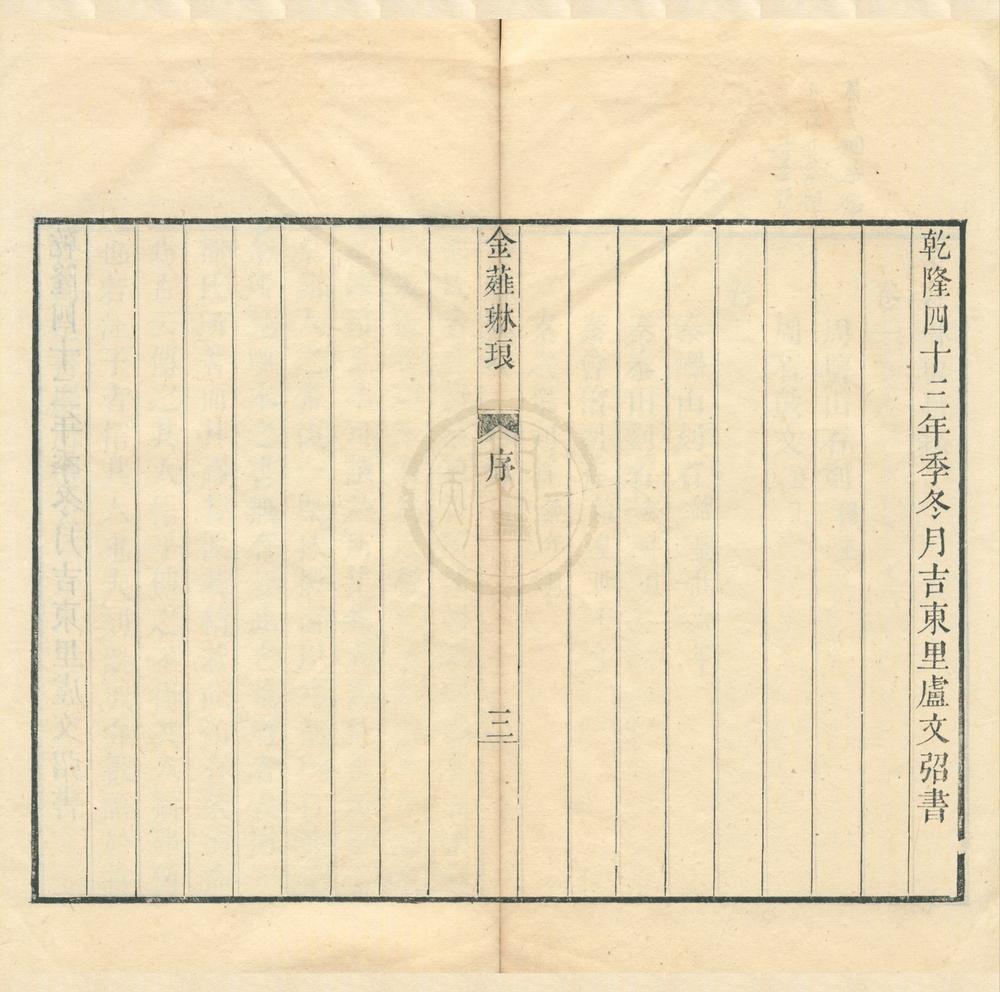 乾隆四十三年季冬月吉東里盧文弨書
金薤琳琅
序
三